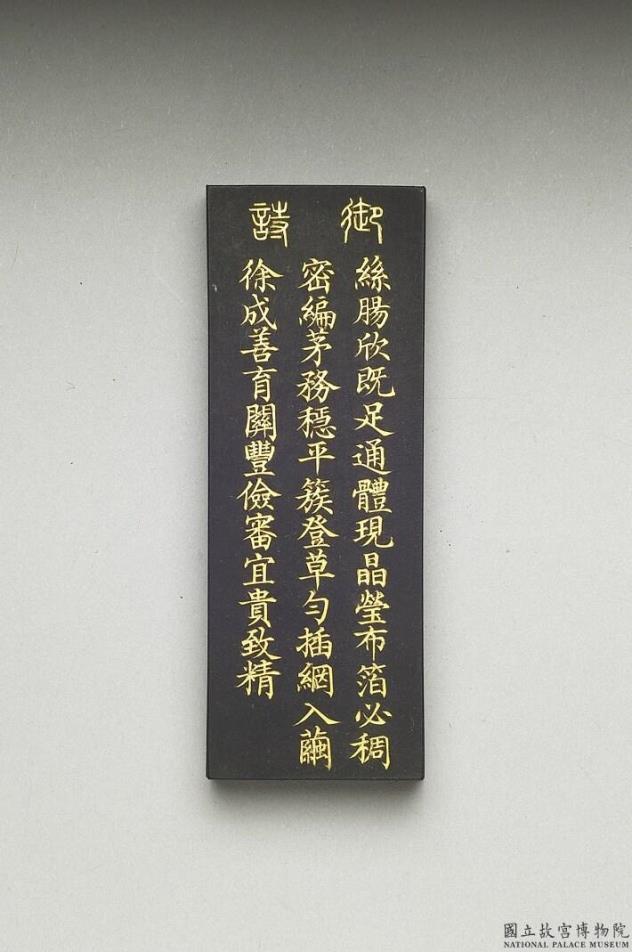 御詩
絲腸欣既足通體現晶瑩布箔必稠
密編茅務穩平簇登草勻插網入繭
徐成善育關豐儉審宜貴致精
國立故宮博物院
NATIONAL PALACE MUSEUM